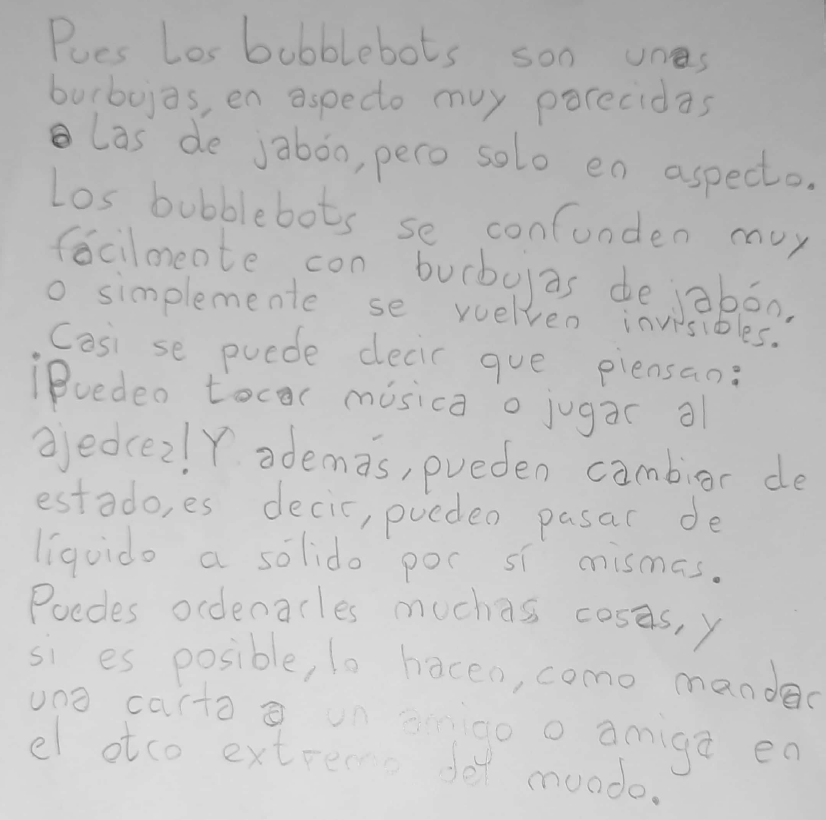 Pues Los bubblebots son unas
burbujas, en aspecto muy parecidas
a Las de jabón, pero solo en aspecto.
Los bubblebots se confunden muy
fácilmente con burbujas de jabón,
o simplemente se vuelven invisibles.
Casi se puede decir que piensan:
¡Pueden tocar música o jugar al
ajedrez! Y además, pueden cambiar de
estado, es decir, pueden pasar de
líquido a sólido por sí mismas.
Puedes ordenarles muchas cosas, y
si es posible, lo hacen, como mandar
una carta a un amigo o amiga en
el otro extremo del mundo.